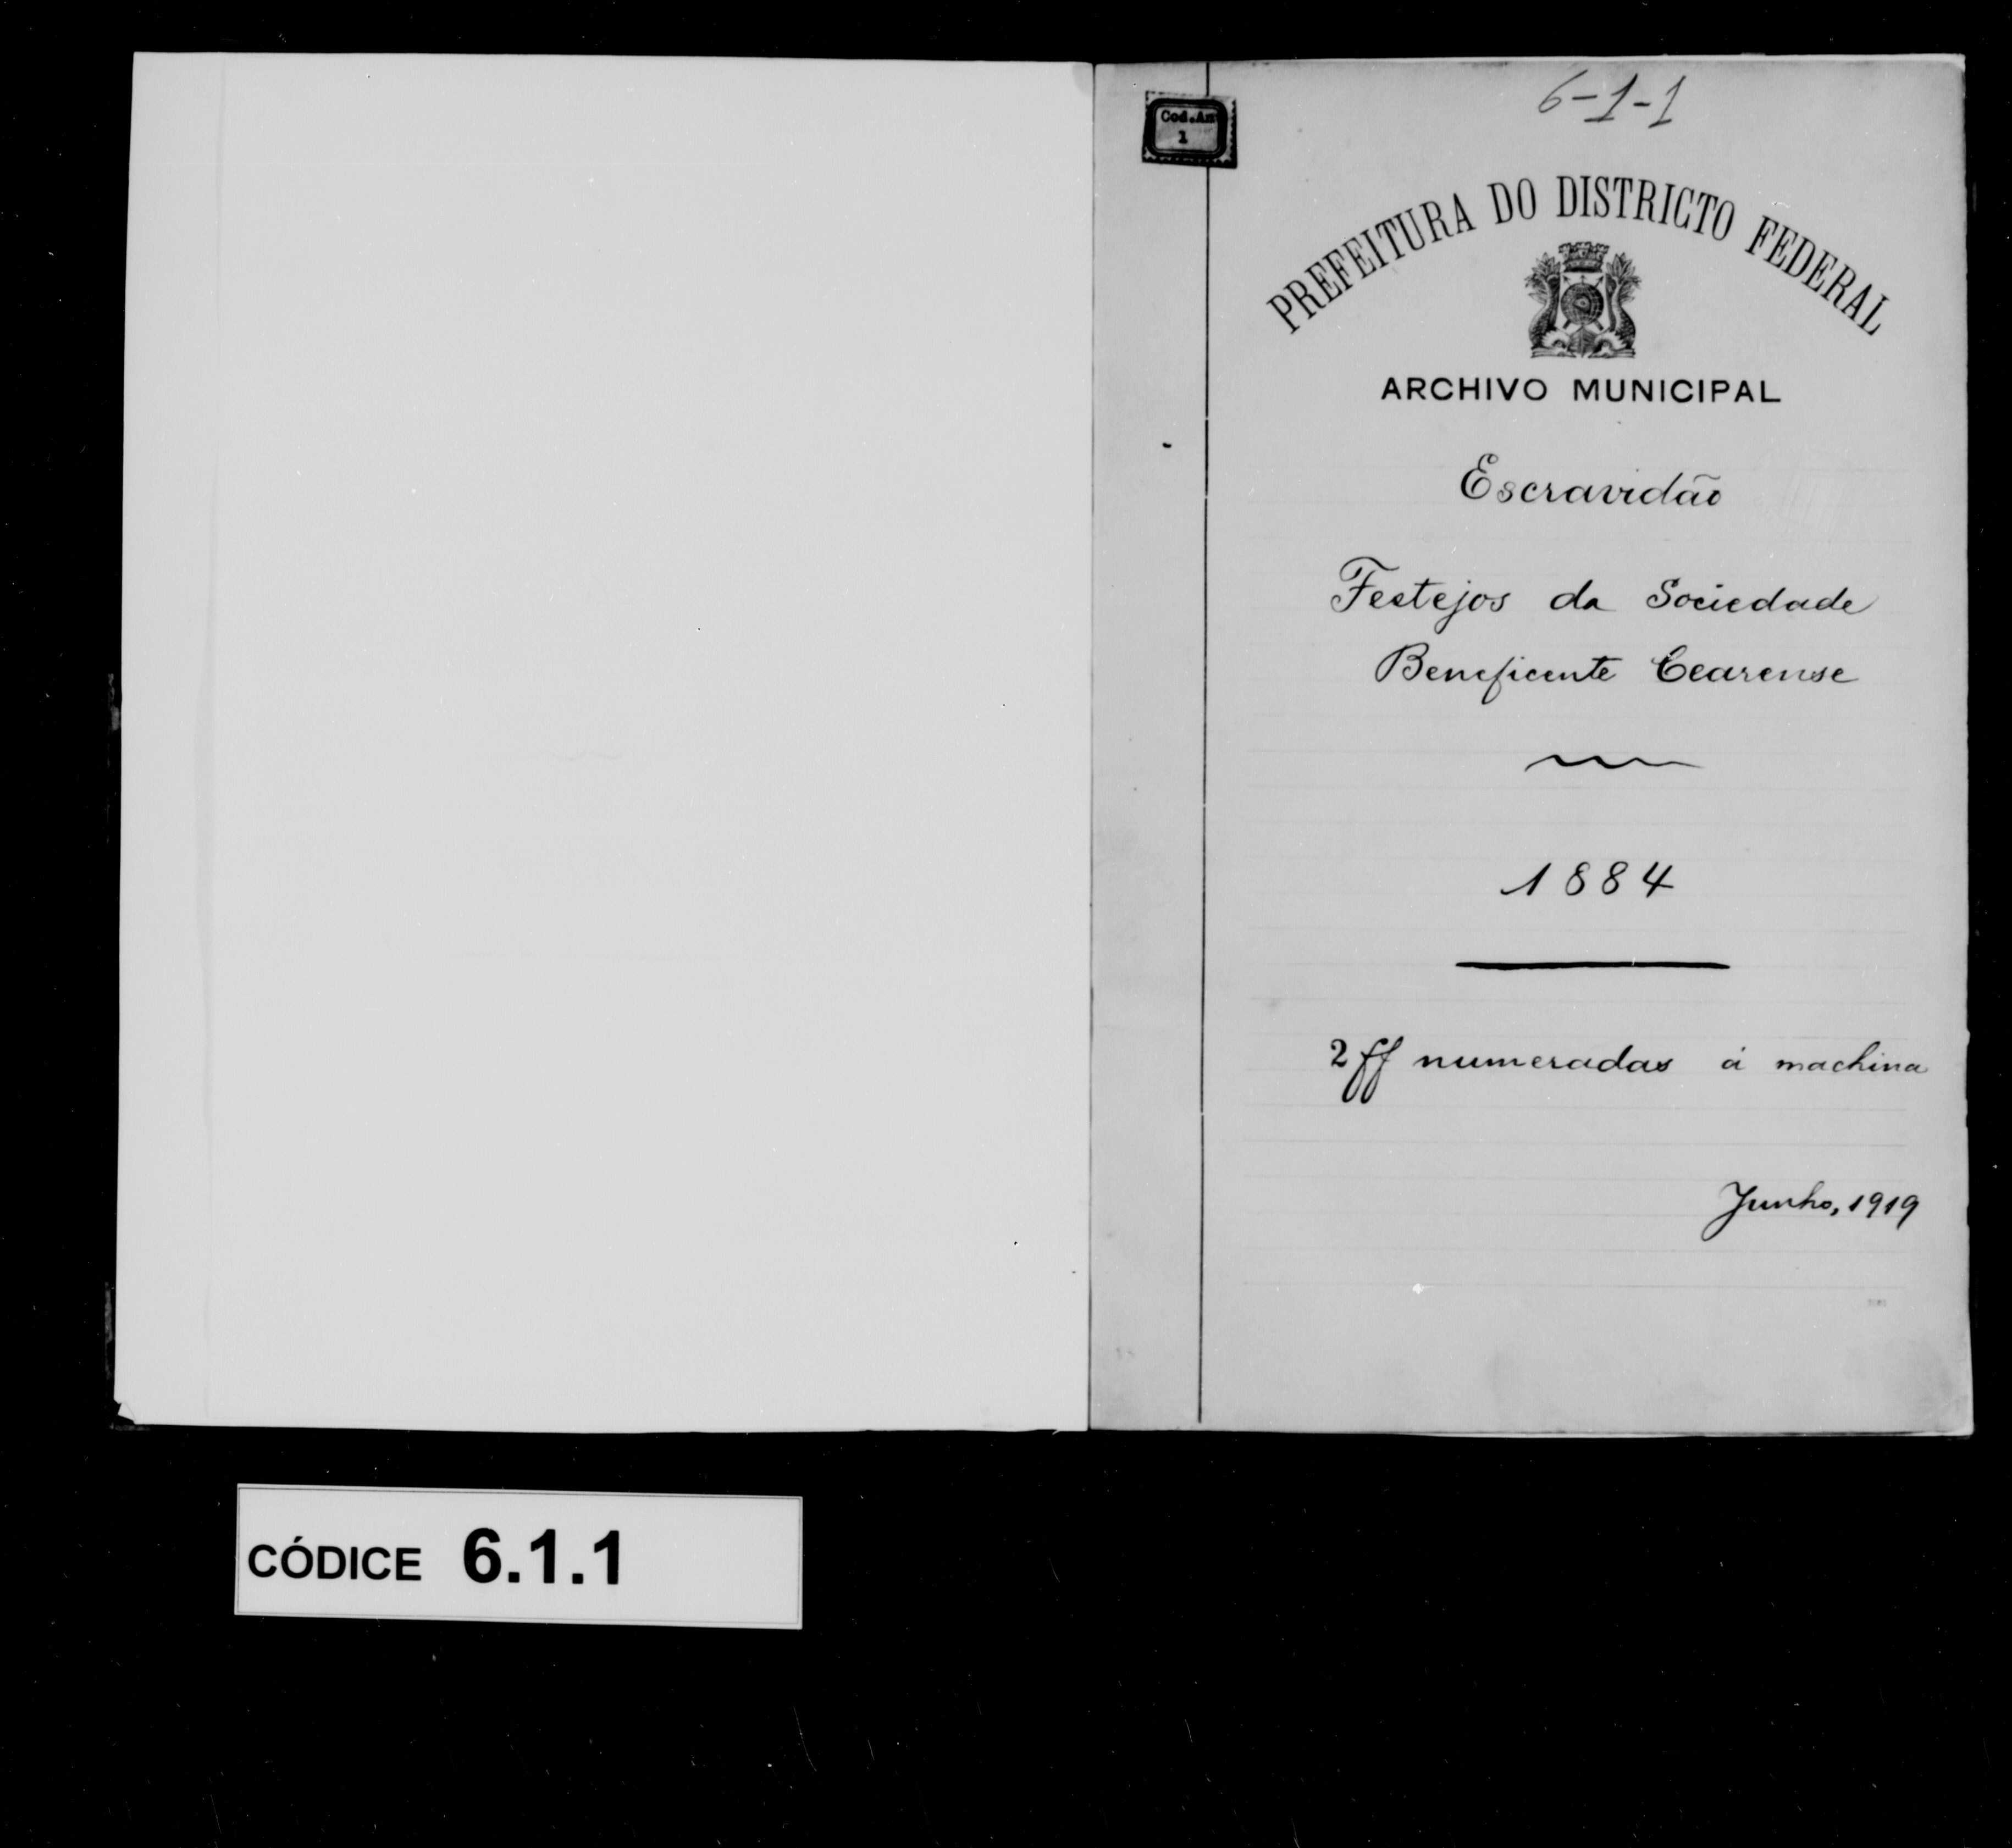 6-1-1
Cod.An
1
PREFEITURA DO DISTRICTO FEDERAL
ARCHIVO MUNICIPAL
Escravidão
Festejos da Sociedade
Beneficente Cearense
1884
2 ff numeradas á machina
Junho, 1919
CÓDICE 6.1.1